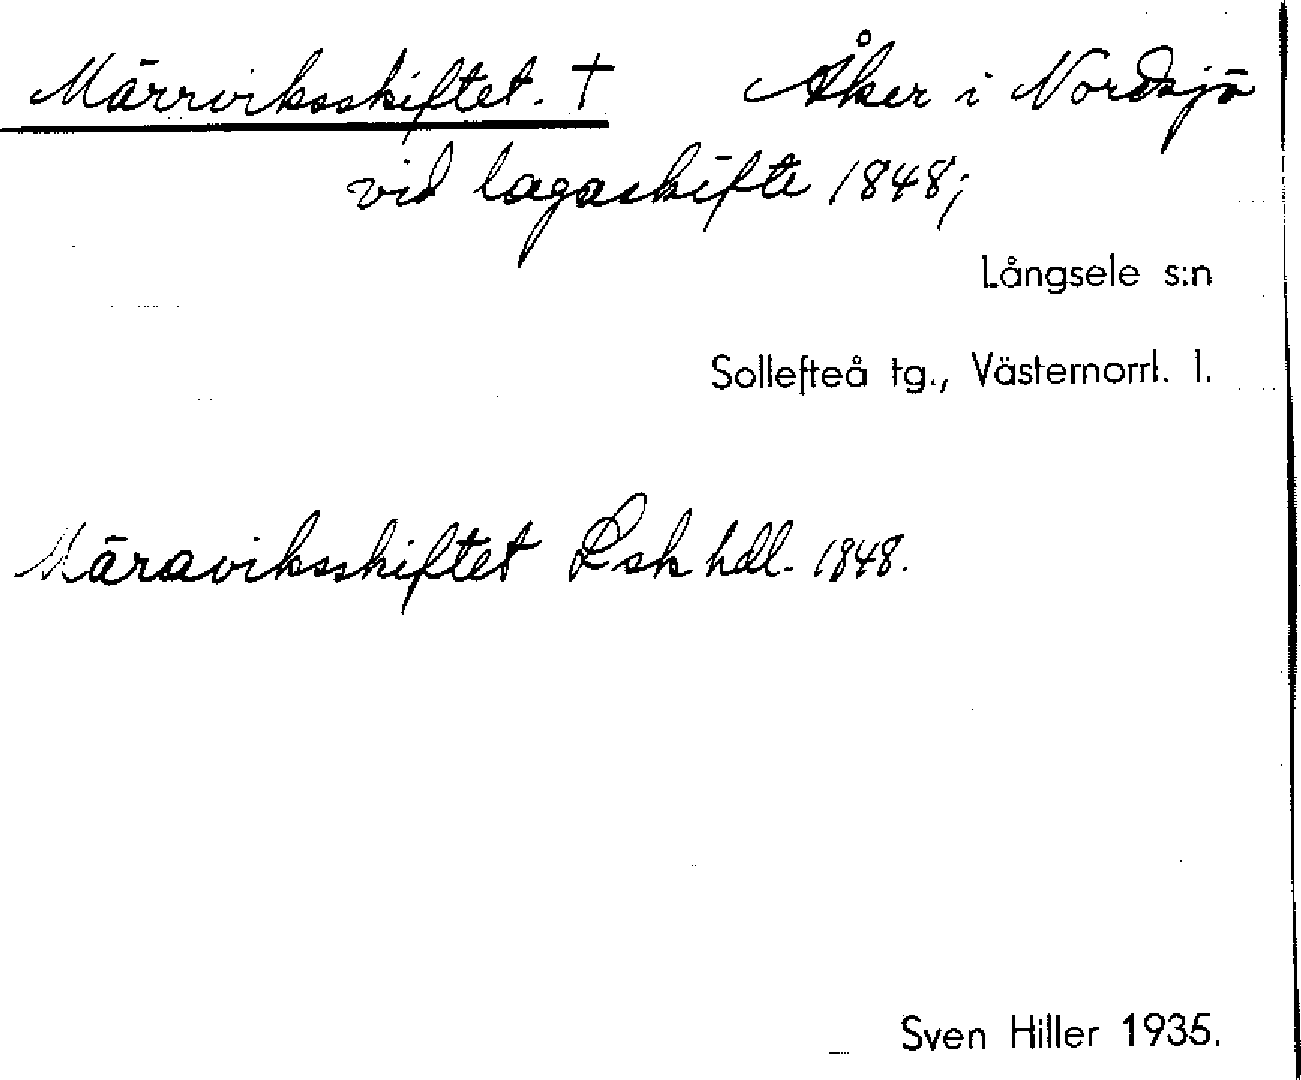 Märrviksskiftet. † Åker i Nordsjö
vid lagaskifte 1848;
Långsele s:n
Sollefteå tg., Västernorrl. l.
Märaviksskiftet Lsk hdl. 1848.
Sven Hiller 1935.